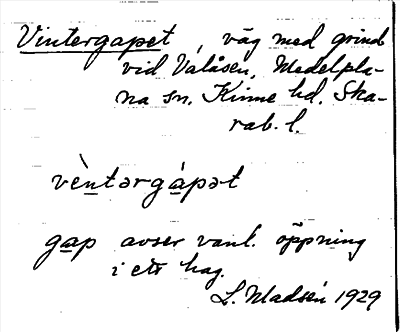 Vintergapet, väg med grind
vid Valåsen, Medelpla-
na sn. Kinne hd. Ska-
rab. l.
vèntərgápət
gap avser vanl. öppning
i ett hag.
L. Mladsén 1929